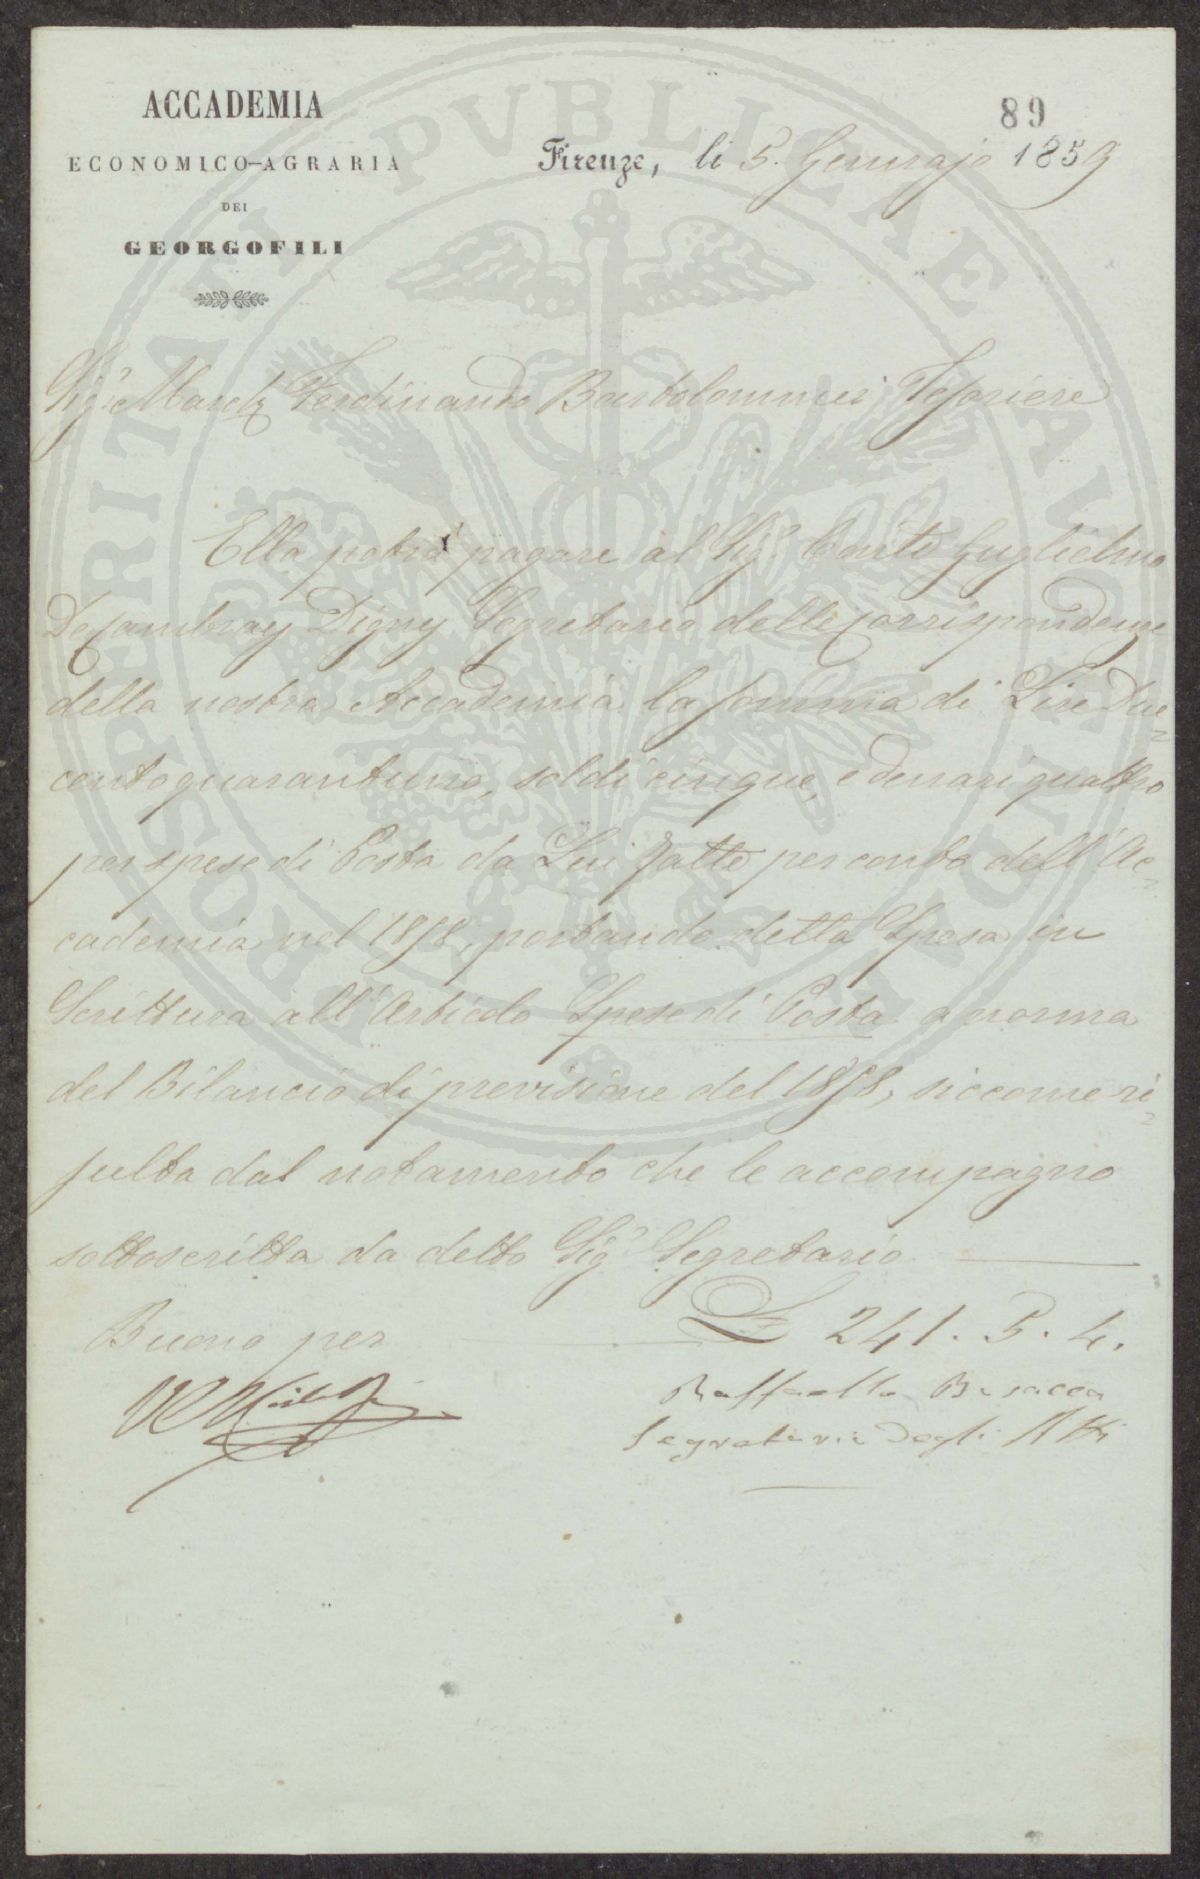 ACCADEMIA
ECONOMICO-AGRARIA
DEI
GEORGOFILI
89
Firenze, li 5. Gennajo 1859
Sigre March. Ferdinando Bartolommei Tesoriere
Ella potrà pagare al Sigr Conte Guglielmo
De Cambray Digny Segretario delle Corrispondenze
della nostra Accademia la somma di Lire Due=
centoquarantuno, soldi cinque, e denari quattro
per spese di Posta da Lui fatte per conto dell'Ac=
cademia nel 1858, portando detta Spesa in
Scrittura all'Articolo Spese di Posta a norma
del Bilancio di previsione del 1858, siccome ri=
sulta dal notamento che le accompagno
sottoscritto da detto Sigr Segretario
Buono per £ 241. 5. 4.
Raffaello Busacca
Segretario degli Atti
PROSPERITATI PVBLICAE AVGENDAE